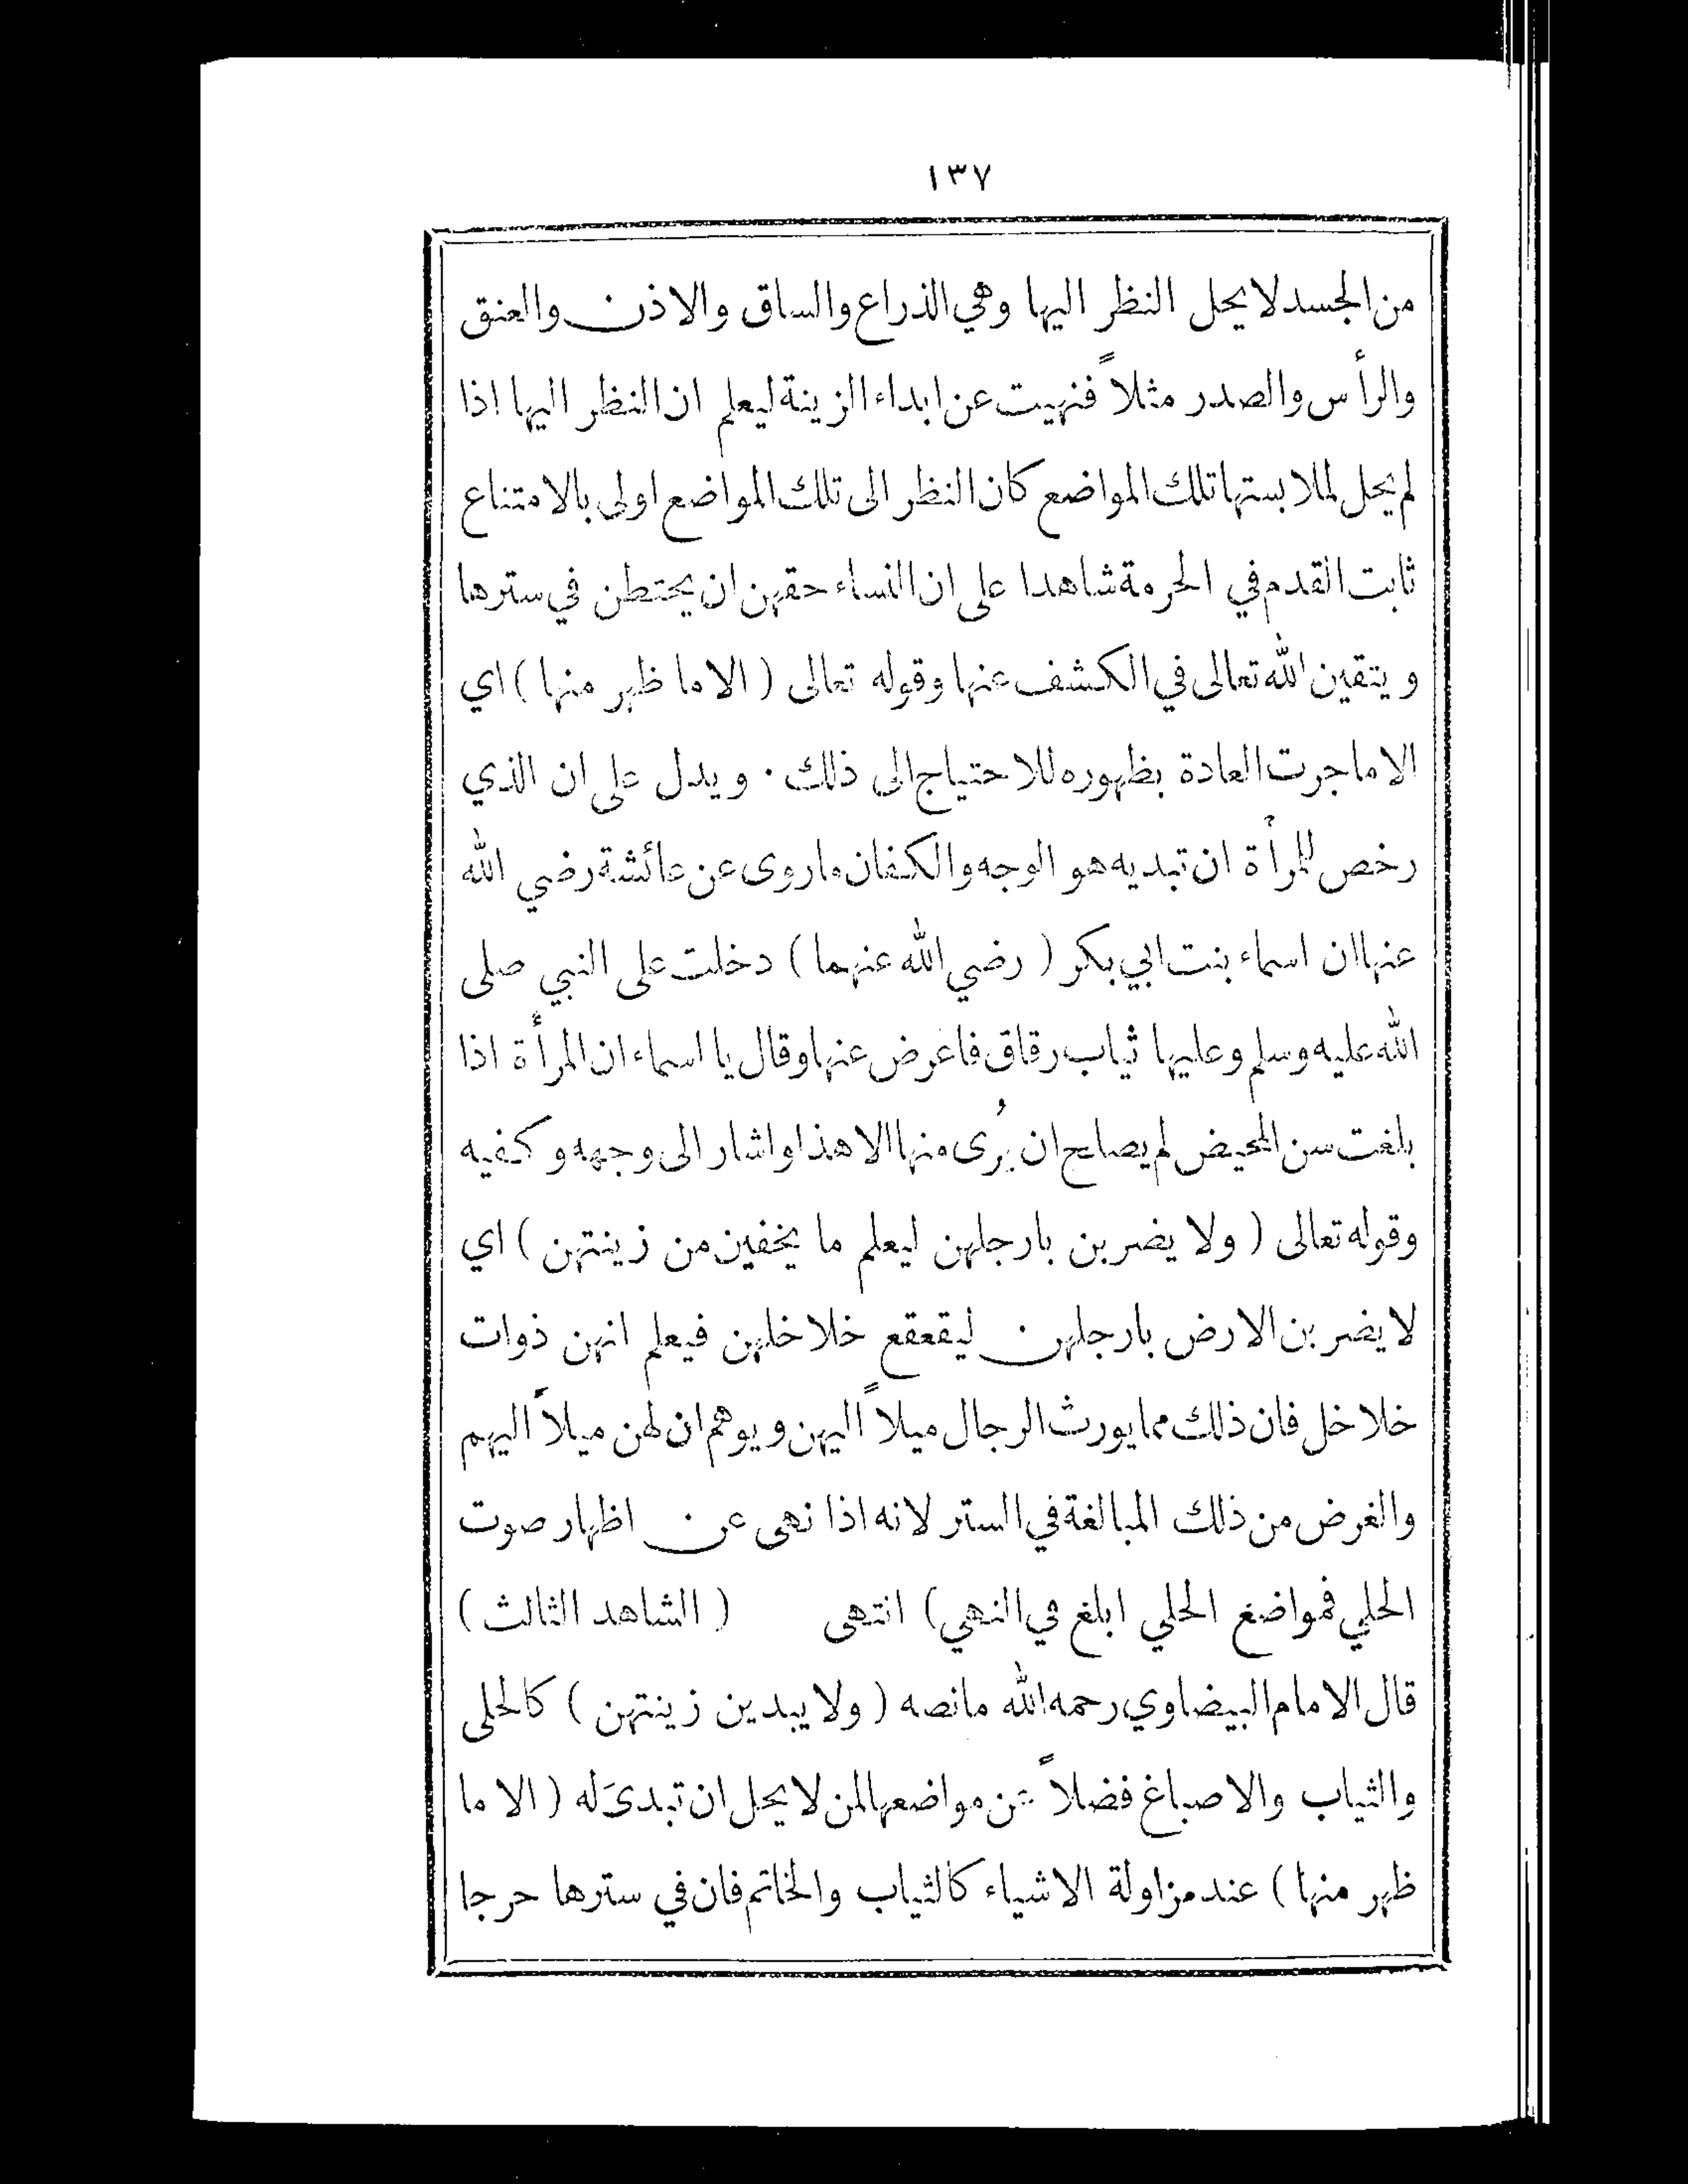 ١٣٧
من الجسد لا يحل النظر اليها وهي الذراع والساق والاذن والعنق
والرأس والصدر مثلاً فنهيت عن ابداء الزينة ليعلم ان النظر اليها اذا
لم يحل لملابستها تلك المواضع كان النظر الى تلك المواضع اولى بالامتناع
ثابت القدم في الحرمة شاهدا على ان النساء حقهن ان يحتطن في سترها
ويتقين الله تعالى في الكشف عنها وقوله تعالى ( الا ما ظهر منها ) اي
الا ما جرت العادة بظهوره للاحتياج الى ذلك . ويدل على ان الذي
رخص للمرأة ان تبديه هو الوجه والكفان ما روى عن عائشة رضي الله
عنها ان اسماء بنت ابي بكر ( رضي الله عنهما ) دخلت على النبي صلى
الله عليه وسلم وعليها ثياب رقاق فاعرض عنها وقال يا اسماء ان المرأة اذا
بلغت سن المحيض لم يصلح ان يُرى منها الا هذا واشار الى وجهه وكفيه
وقوله تعالى ( ولا يضربن بارجلهن ليعلم ما يخفين من زينتهن ) اي
لا يضربن الارض بارجلهن ليقعقع خلاخلهن فيعلم انهن ذوات
خلاخل فان ذلك مما يورث الرجال ميلاً اليهن ويوهم ان لهن ميلاً اليهم
والغرض من ذلك المبالغة في الستر لانه اذا نهى عن اظهار صوت
الحلي فمواضغ الحلي ابلغ في النهي) انتهى ( الشاهد الثالث )
قال الامام البيضاوي رحمه الله ما نصه ( ولا يبدين زينتهن ) كالحلى
والثياب والاصباغ فضلاً عن مواضعها لمن لا يحل ان تبدىَ له ( الا ما
ظهر منها ) عند مزاولة الاشياء كالثياب والخاتم فان في سترها حرجا